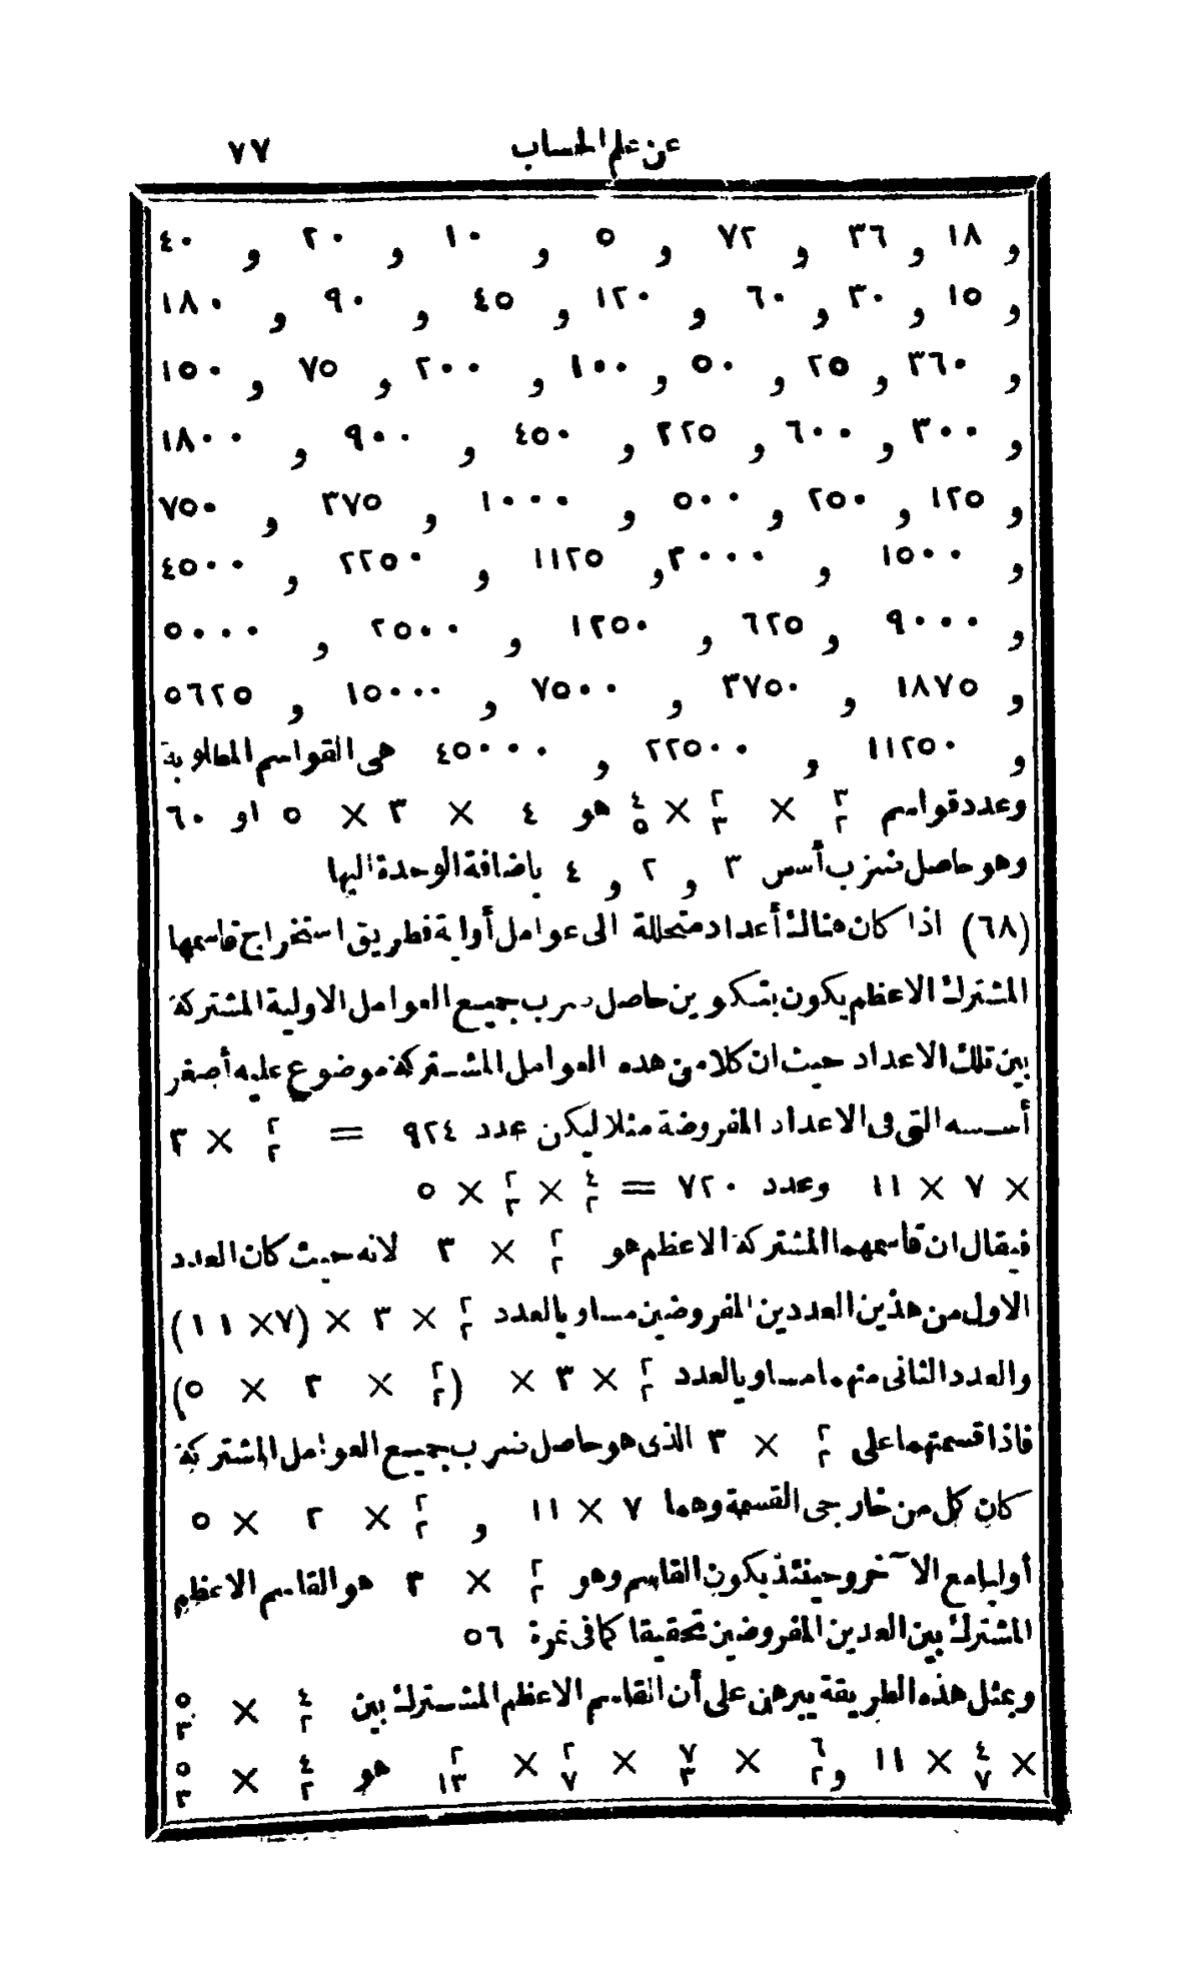 عن علم الحساب ٧٧
و ١٨ و ٣٦ و ٧٢ و ٥ و ١٠ و ٢٠ و ٤٠
و ١٥ و ٣٠ و ٦٠ و ١٢٠ و ٤٥ و ٩٠ و ١٨٠
و ٣٦٠ و ٢٥ و ٥٠ و ١٠٠ و ٢٠٠ و ٧٥ و ١٥٠
و ٣٠٠ و ٦٠٠ و ٢٢٥ و ٤٥٠ و ٩٠٠ و ١٨٠٠
و ١٢٥ و ٢٥٠ و ٥٠٠ و ١٠٠٠ و ٣٧٥ و ٧٥٠
و ١٥٠٠ و ٣٠٠٠ و ١١٢٥ و ٢٢٥٠ و ٤٥٠٠
و ٩٠٠٠ و ٦٢٥ و ١٢٥٠ و ٢٥٠٠ و ٥٠٠٠
و ١٨٧٥ و ٣٧٥٠ و ٧٥٠٠ و ١٥٠٠٠ و ٥٦٢٥
و ١١٢٥٠ و ٢٢٥٠٠ و ٤٥٠٠٠ هى القواسم المطلوبة
وعدد قواسم ٢^٣ × ٣^٢ × ٥^٤ هو ٤ × ٣ × ٥ او ٦٠
وهو حاصل ضرب أسس ٣ و ٢ و ٤ باضافة الوحدة اليها
(٦٨) اذا كان هنالك أعداد متحللة الى عوامل أولية فطريق استخراج قاسمها
المشترك الاعظم يكون بتكوين حاصل ضرب جميع العوامل الاولية المشتركة
بين تلك الاعداد حيث ان كلا من هذه العوامل المشتركة موضوع عليه أصغر
أسسه التى فى الاعداد المفروضة مثلا ليكن عدد ٩٢٤ = ٢^٢ × ٣
× ٧ × ١١ وعدد ٧٢٠ = ٢^٤ × ٣^٢ × ٥
فيقال ان قاسمهما المشترك الاعظم هو ٢^٢ × ٣ لانه حيث كان العدد
الاول من هذين العددين المفروضين مساويا لعدد ٢^٢ × ٣ × (٧ × ١١)
والعدد الثانى منهما مساويا لعدد ٢^٢ × ٣ × (٢^٢ × ٣ × ٥)
فاذا قسمتهما على ٢^٢ × ٣ الذى هو حاصل ضرب جميع العوامل المشتركة
كان كل من خارجى القسمة وهما ٧ × ١١ و ٢^٢ × ٢ × ٥
أوليا مع الآخر وحينئذ يكون القاسم وهو ٢^٢ × ٣ هو القاسم الاعظم
المشترك بين العدين المفروضين تحقيقا كما فى نمرة ٥٦
وبمثل هذه الطريقة يبرهن على أن القاسم الاعظم المشترك بين ٢^٤ × ٣^٥
× ٧^٤ × ١١ و ٢^٦ × ٣^٧ × ٧^٢ × ١٣^٢ هو ٢^٤ × ٣^٥